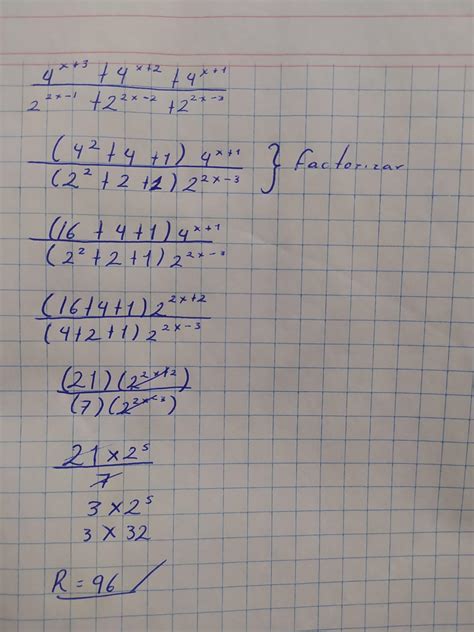 4^{x+3} + 4^{x+2} + 4^{x+1}
2^{2x-1} + 2^{2x-2} + 2^{2x-3}
(4² + 4 + 1) 4^{x+1} } factorizar
(2² + 2 + 1) 2^{2x-3}
(16 + 4 + 1) 4^{x+1}
(2² + 2 + 1) 2^{2x-3}
(16 + 4 + 1) 2^{2x+2}
(4 + 2 + 1) 2^{2x-3}
(21) (2^{2x+2})
(7) (2^{2x-3})
21 × 2⁵
7
3 × 2⁵
3 × 32
R = 96